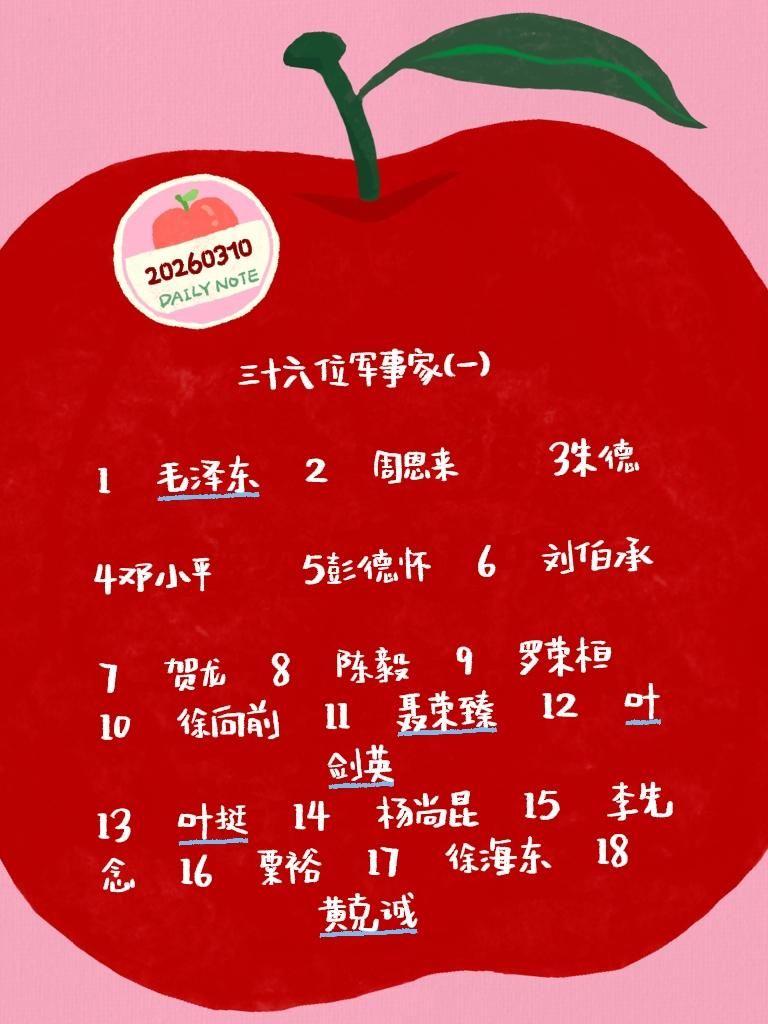 20260310
DAILY NOTE
三十六位军事家(一)
1 毛泽东 2 周恩来 3朱德
4邓小平 5彭德怀 6 刘伯承
7 贺龙 8 陈毅 9 罗荣桓
10 徐向前 11 聂荣臻 12 叶
剑英
13 叶挺 14 杨尚昆 15 李先
念 16 粟裕 17 徐海东 18
黄克诚